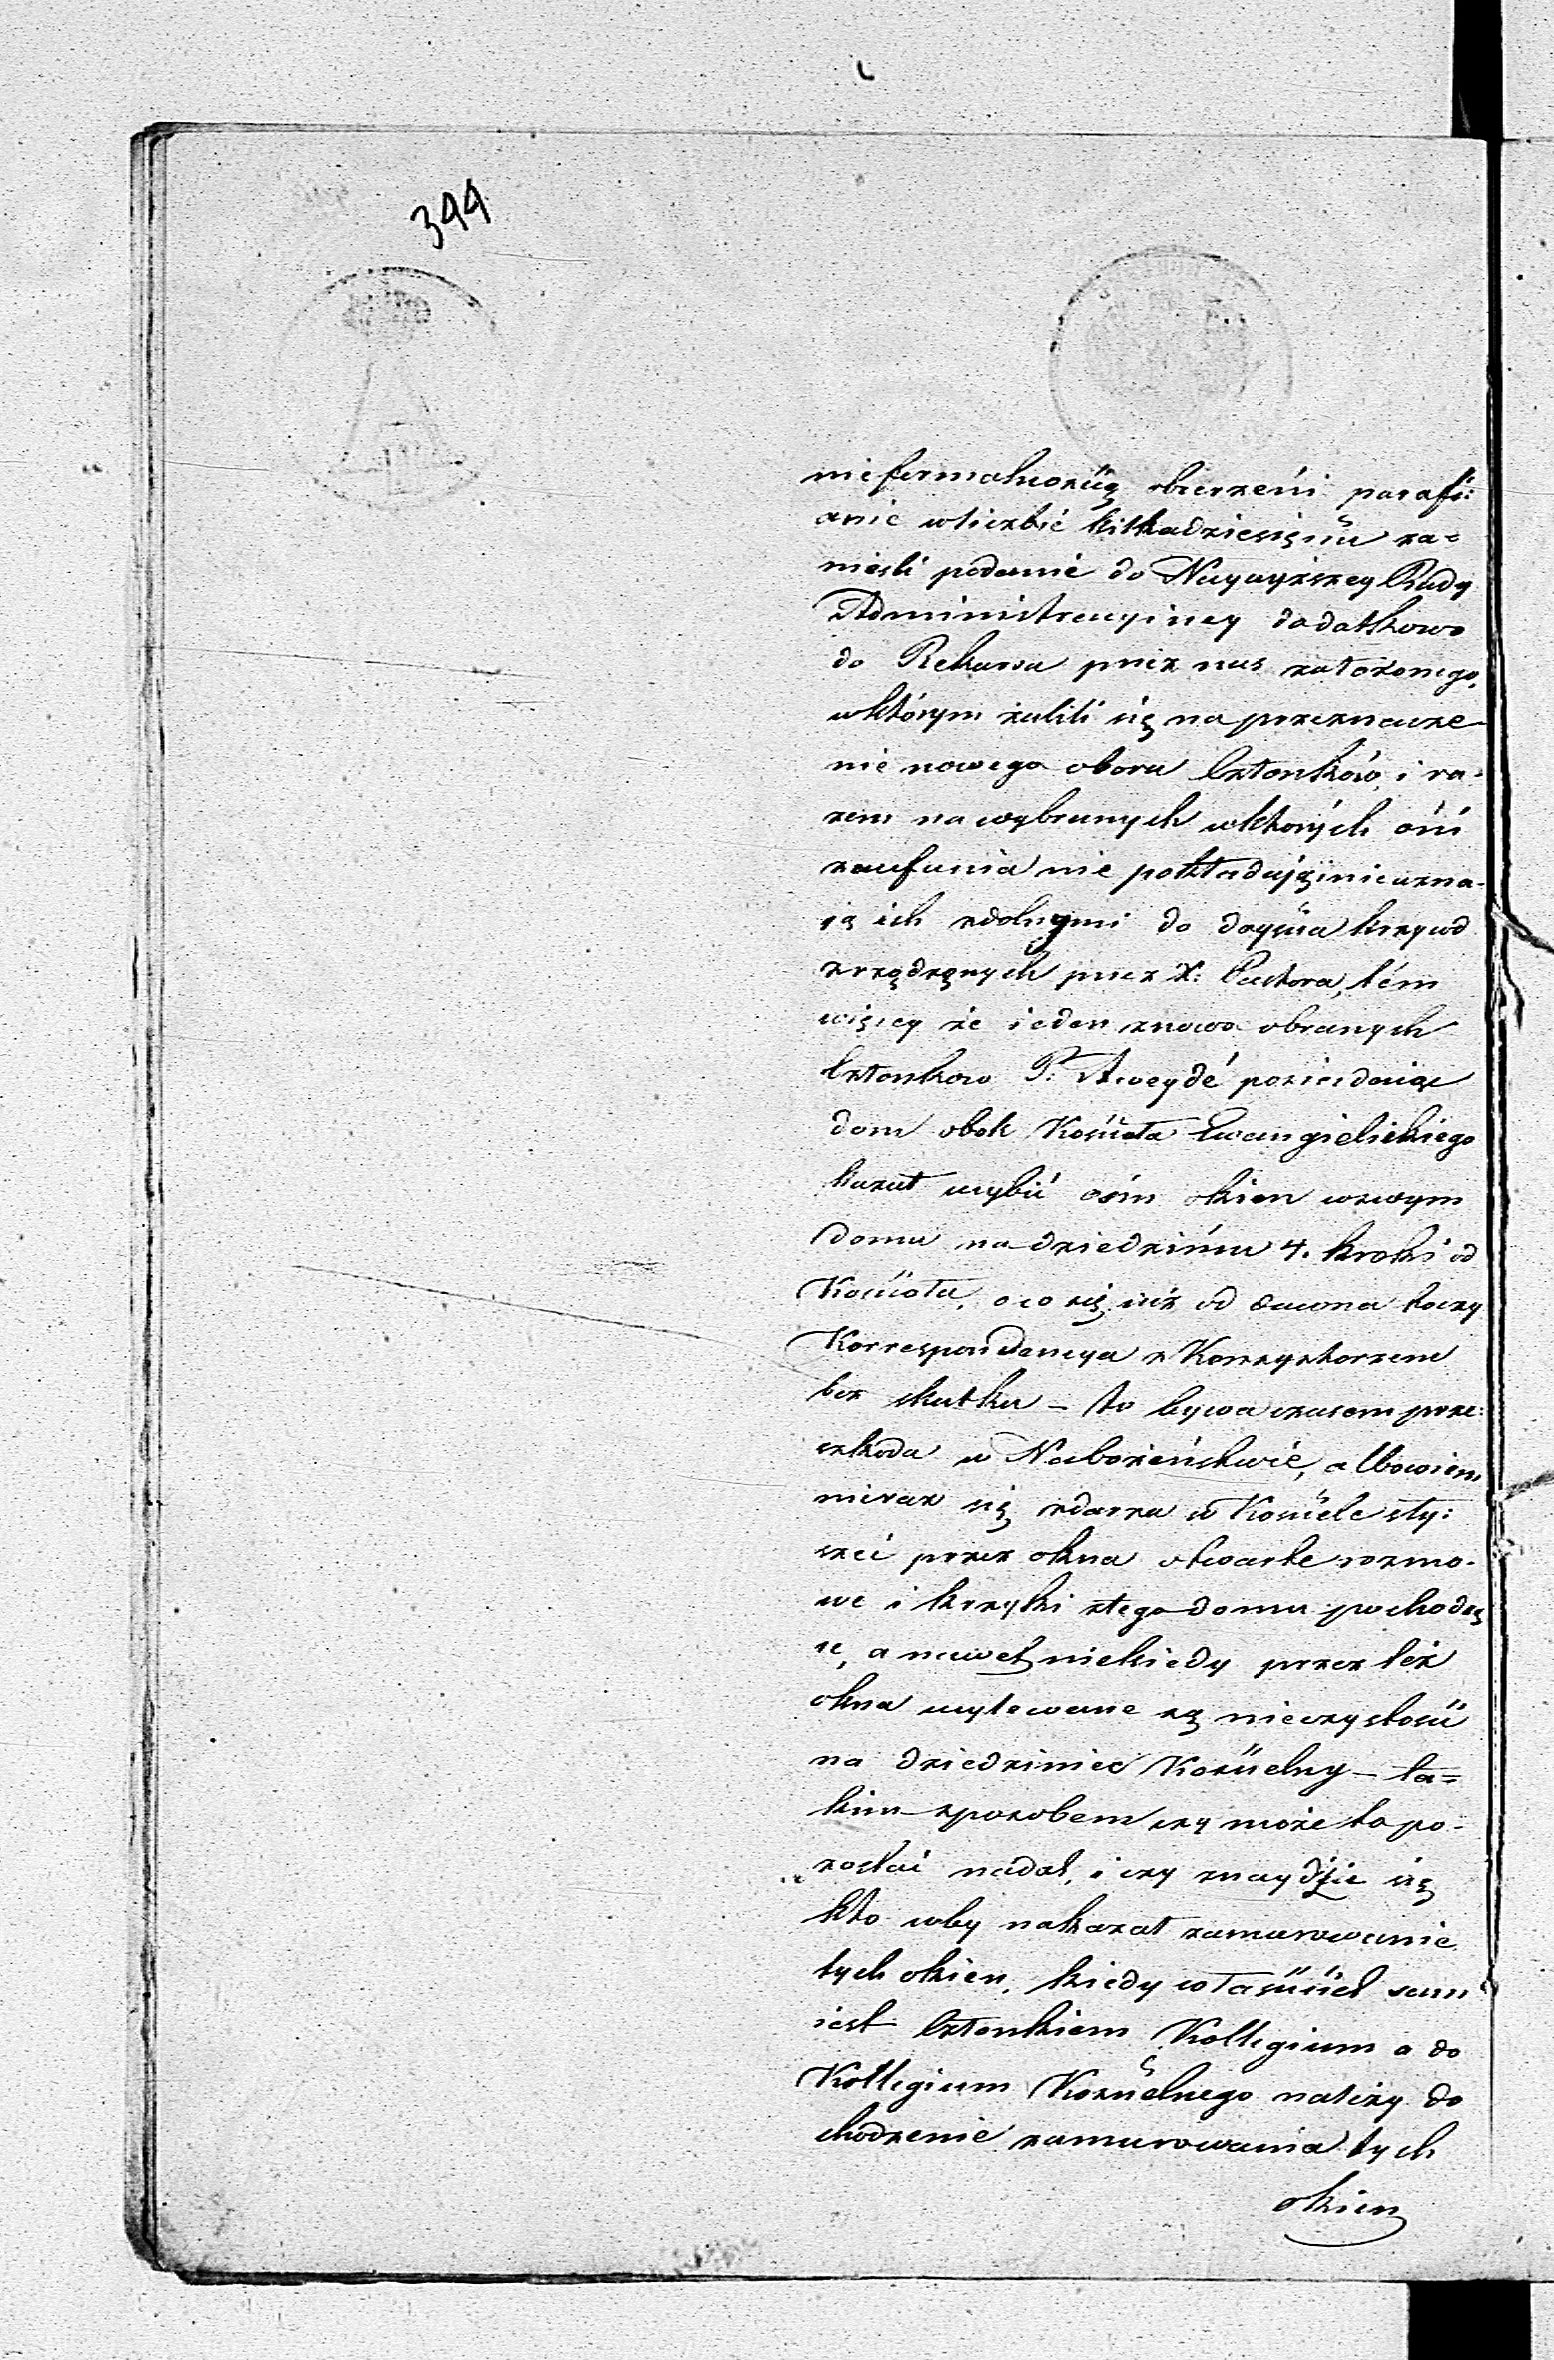 344
nieformalnością obcerzeńi parafi:
anie wliczbie kilkadziesiąciu za=
nieśli podanie do Naywyższey Rady
Administracyiney dodatkowo
do Rekursu przez nas założonego,
wktórym żalili się na przeznacze-
nie nowego oboru Członków, i ra-
zem na wybranych wktorych oni
zaufania nie pokładają i nie uzna-
ią ich zdolnymi do doyścia krzywd
zrządzonych przez X: Pastora, tém
więcey że ieden znowo obranych
Członkow P: Aweydé posiadaiąc
dom obok Kościoła Ewangielickiego
kazał wybić ośm okien wswym
domu na dziedzińcu 4. kroki od
Kościoła, o co się iuż od dawna toczy
Korrespondencya z Konsystorzem
bez skutku – to bywa czasem prze:
szkoda w Nabożeństwie, albowiem
nieraz się zdarza w Kościele sły:
szeć przez okna otwarte rozmo-
we i krzyki ztego domu pochodzą
ce, a nawet niekiedy przez też
okna wylewane są nieczystości
na dziedziniec Kościelny – ta=
kim sposobem czy może to po-
zostać nadal, i czy znaydzie się
kto coby nakazał zamurowanie
tych okien, kiedy właściciel sam
iest Członkiem Kollegium a do
Kollegium Kościelnego należy do
chodzenie zamurowania tych
okien